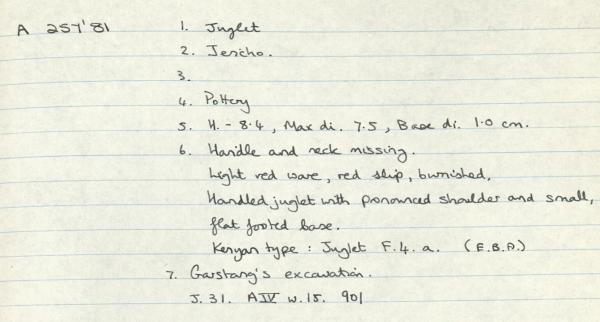 A 257'81 1. Juglet
2. Jericho.
3.
4. Pottery
5. H. - 8.4, Max di. 7.5, Base di. 1.0 cm.
6. Handle and neck missing.
Light red ware, red slip, burnished.
Handled juglet with pronounced shoulder and small,
flat footed base.
Kenyan type : Juglet F.4.a. (E.B.A.)
7. Garstang's excavation.
J. 31. A IV W. 15. 901